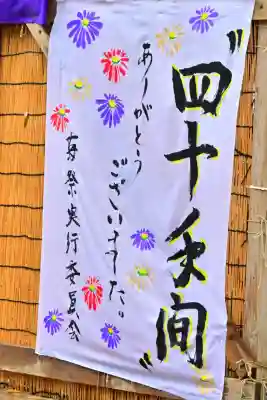 "四十年間"
ありがとう
ございました。
祭実行委員会